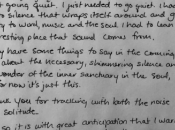 going quiet. I just needed to go quiet. I had
silence that wraps itself around and g
to work, music and the soul. I had to learn
resting place that sound comes from.
y have some things to say in the coming
about the necessary, shimmering silence an
wonder of the inner sanctuary in the soul,
for now it's just this.
you for traveling with both the noise
solitude.
so, it is with great anticipation that I wan